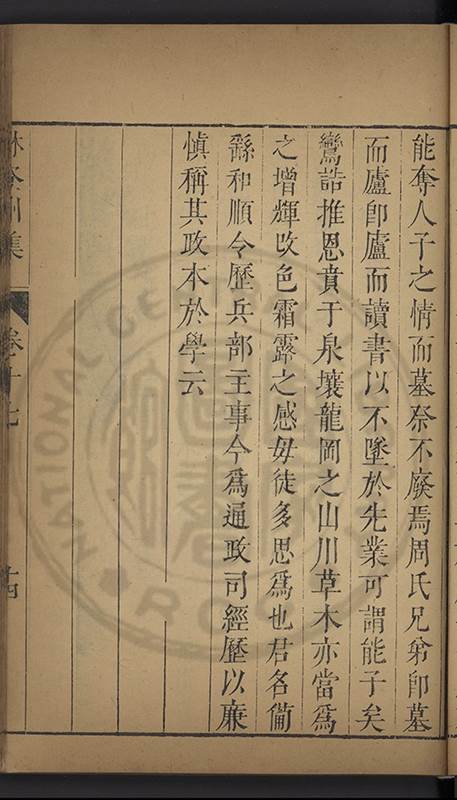 能奪人子之情而墓祭不廢焉周氏兄弟即墓
而廬即廬而讀書以不墜於先業可謂能子矣
鸞誥推恩賁于泉壤龍岡之山川草木亦當為
之增輝改色霜露之感毋徒多思為也君名備
繇和順令歷兵部主事今爲通政司經歷以廉
慎稱其政本於學云
卷十七
十四